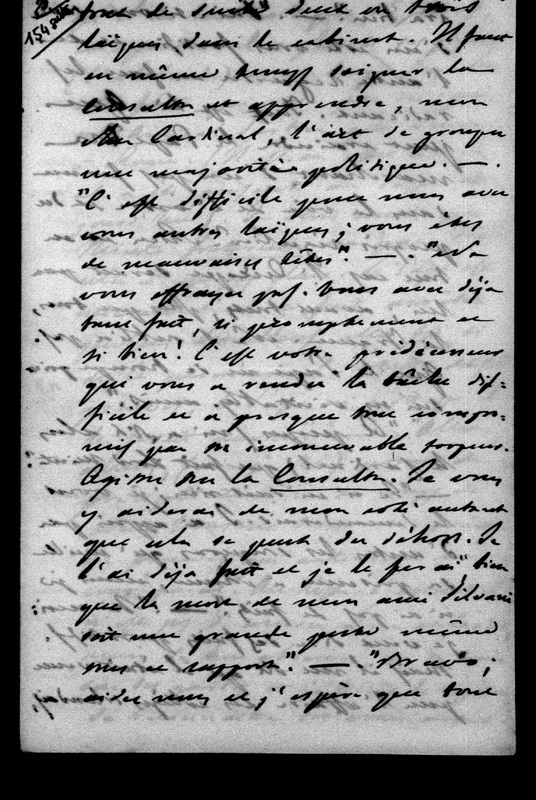 154
faut de suite deux ou trois
laïques dans le cabinet. Il faut
en même temps soigner la
Consulta et apprendre, mon
cher Cardinal, l'art de grouper
une majorité politique. —.
"C'est difficile pour nous avec
vous autres laïques; vous êtes
de mauvaises têtes." —. "Ne
vous effrayez pas. Vous avez déjà
tant fait, si promptement et
si bien! C'est votre prédécesseur
qui vous a rendu la tâche dif-
ficile et a presque tout compro-
mis par son inconcevable torpeur.
Agissez sur la Consulta. Je vous
y aiderai de mon côté autant
que cela se peut du déhors. Je
l'ai déja fait et je le ferai, bien
que la mort de mon ami Silvani
soit une grande perte même
sous ce rapport." —. "Bravo;
aidez nous et j'espère que tout